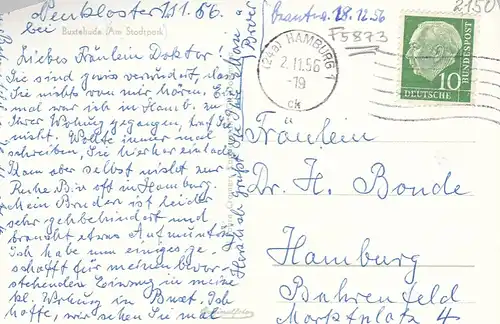 Neukloster 1.11.56.
bei Buxtehude (Am Stadtpark)
Liebes Fräulein Doktor!
Sie sind gewiss verwundert, dass
Sie nichts von mir hören. Ein
mal war ich in Hamb. zu
Ihrer Wohnung gegangen, traf Sie
nicht. Wollte immer mal
schreiben, Sie hierher einladen
kam aber selbst nicht zur
Ruhe. Bin oft in Hamburg.
Mein Bruder ist leider
sehr gehbehindert und
braucht etwas Aufmunterung
Ich habe nun einiges ge-
schafft für meinen bevor-
stehenden Einzug in meine
kl. Wohnung in Buxt. Ich
hoffe, wir sehen Sie mal
Herzlich grüßt Sie
Bruder
beantw. 28.12.56
F5873
2150
(24a) HAMBURG 1
2.11.56
-19
ck
10
DEUTSCHE
BUNDESPOST
Fräulein
Dr. H. Bonde
Hamburg
Bahrenfeld
Marktplatz 4